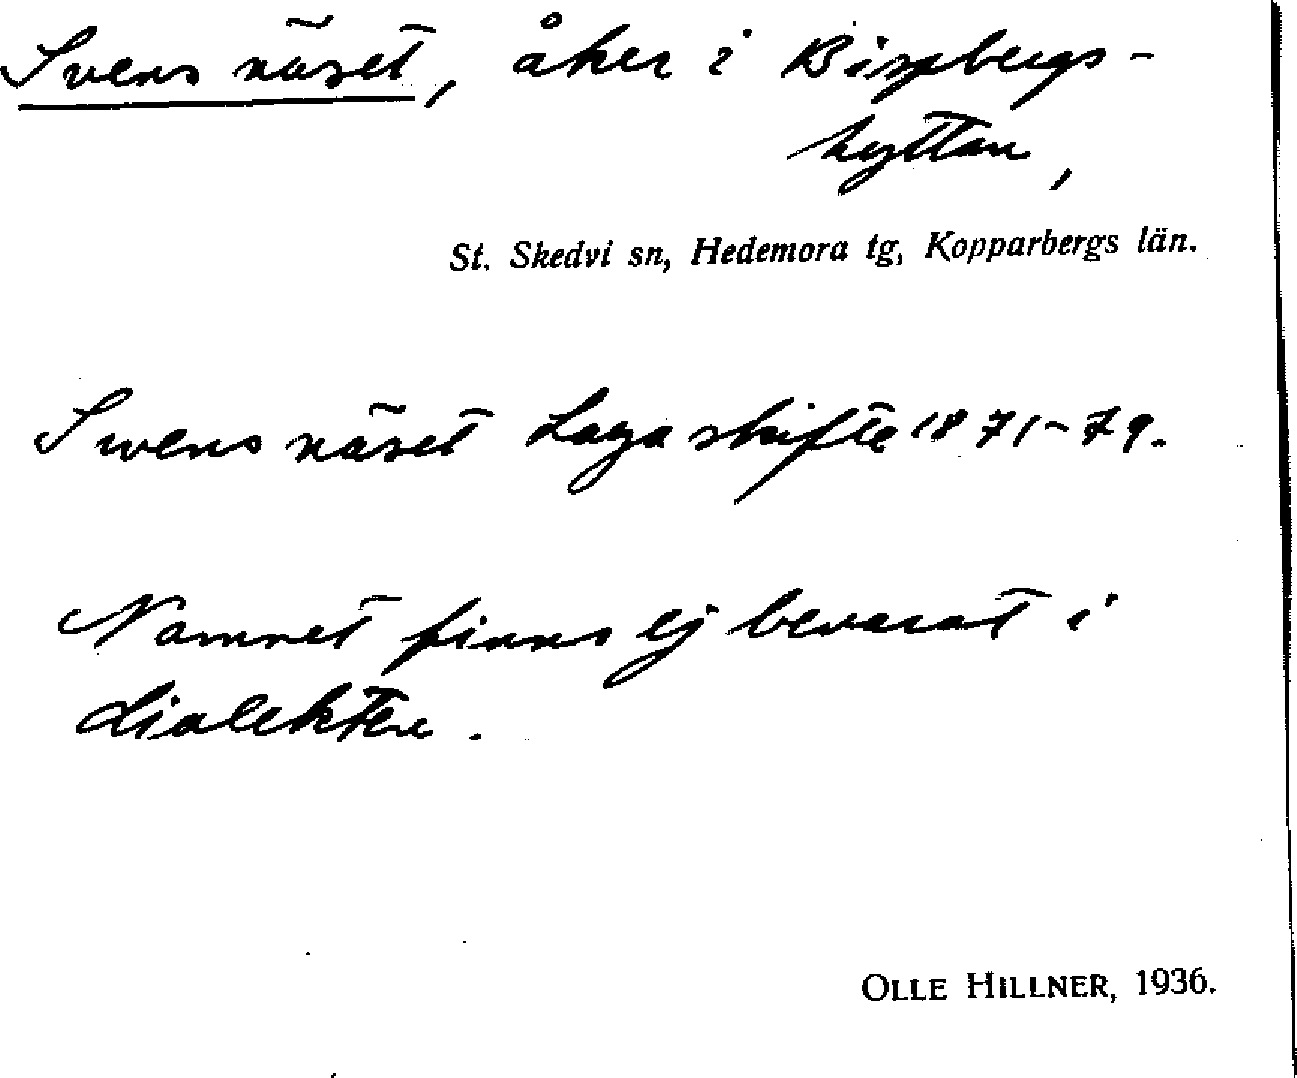 Svens näset, åker i Bispbergs-
hyttan,
St. Skedvi sn, Hedemora tg, Kopparbergs län.
Svens näset Laga skifte 1871-79.
Namnet finns ej bevarat i
dialekten.
OLLE HILLNER, 1936.